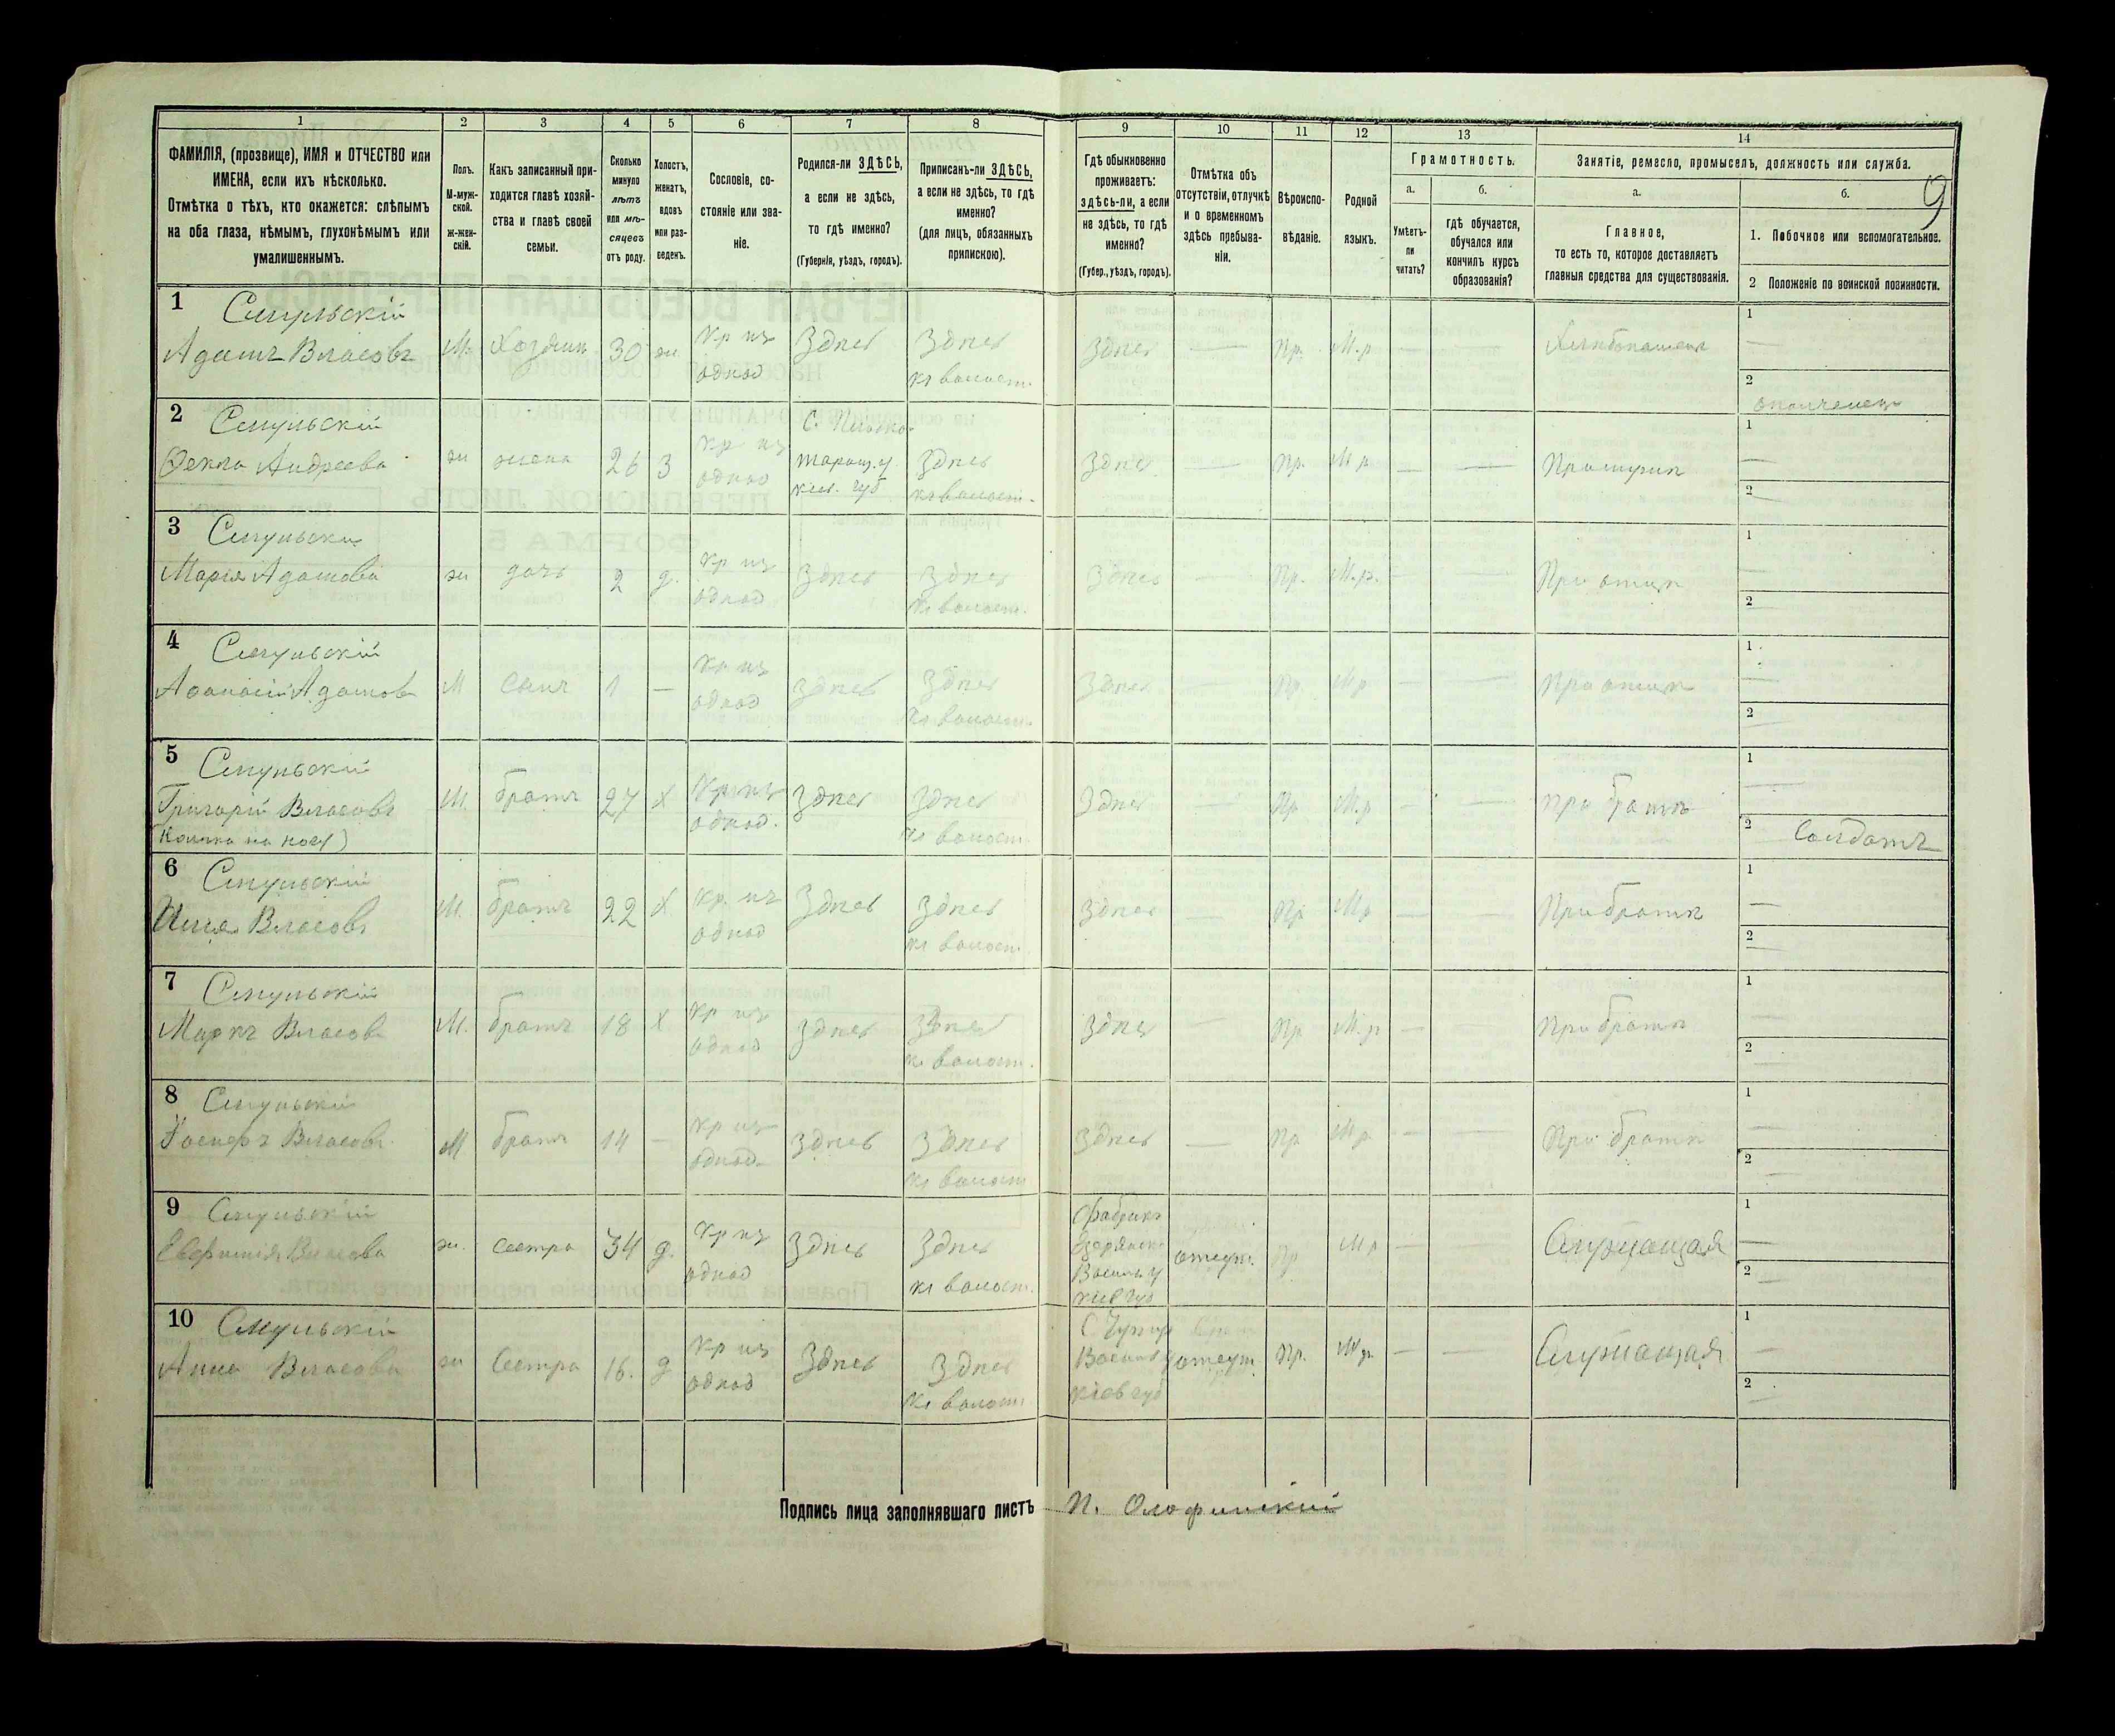 9
1
2
3
4
5
6
7
8
9
10
11
12
13
14
ФАМИЛІЯ, (прозвище), ИМЯ и ОТЧЕСТВО или
ИМЕНА, если ихъ нѣсколько.
Отмѣтка о тѣхъ, кто окажется: слѣпымъ
на оба глаза, нѣмымъ, глухонѣмымъ или
умалишеннымъ.
Полъ.
М-муж-
ской.
ж-жен-
скій.
Какъ записанный при-
ходится главѣ хозяй-
ства и главѣ своей
семьи.
Сколько
минуло
лѣтъ
или мѣ-
сяцевъ
отъ роду.
Холостъ,
женатъ,
вдовъ
или раз-
веденъ.
Сословіе, со-
стояніе или зва-
ніе.
Родился-ли ЗДѢСЬ,
а если не здѣсь,
то гдѣ именно?
(Губернія, уѣздъ, городъ).
Приписанъ-ли ЗДѢСЬ,
а если не здѣсь, то гдѣ
именно?
(для лицъ, обязанныхъ
припискою).
Гдѣ обыкновенно
проживаетъ:
здѣсь-ли, а если
не здѣсь, то гдѣ
именно?
(Губер., уѣздъ, городъ).
Отмѣтка объ
отсутствіи, отлучкѣ
и о временномъ
здѣсь пребыва-
ніи.
Вѣроиспо-
вѣданіе.
Родной
языкъ.
Грамотность.
а.
Умѣетъ-
ли
читать?
б.
гдѣ обучается,
обучался или
кончилъ курсъ
образованія?
Занятіе, ремесло, промыселъ, должность или служба.
а.
Главное,
то есть то, которое доставляетъ
главныя средства для существованія.
б.
1. Побочное или вспомогательное.
2 Положеніе по воинской повинности.
1
Адамъ Власовъ
М.
Хозяинъ
30
ж.
Кр из
однод
Здесь
Здесь
къ волост.
Здесь
—
Пр.
М.р
—
—
Хлебопашец
1
—
2
ополченец
2
Смульскій
Фекла Андреева
ж
жена
26
З
Кр из
однод
Таращ. у
Кіев. губ
Здесь
къ волост.
Здесь
—
Пр.
М р
—
—
При мужѣ
1
—
2
—
3
Марія Адамова
ж
дочь
2
д.
Кр из
однод
Здесь
Здесь
къ волост.
Здесь
—
Пр.
М.р.
—
—
При отцѣ
1
—
2
—
4
Смульскій
Афанасій Адамовъ
М
сынъ
1
—
Кр из
однод
Здесь
Здесь
къ волост.
Здесь
—
Пр.
М р
—
—
При отцѣ
1
—
2
—
5
Смульскій
Григорій Власовъ
М.
братъ
27
х
Кр из
однод.
Здесь
Здесь
къ волост.
Здесь
Пр
М.р
—
—
При братѣ
1
—
2
Солдатъ
6
Смульскій
Илья Власовъ
М.
братъ
22
х
Кр. из
однод
Здесь
Здесь
къ волост.
Здесь
—
Пр
М р
—
—
При братѣ
1
—
2
—
7
Смульскій
Маркъ Власовъ
М.
братъ
18
х
Кр из
однод
Здесь
Здесь
къ волост.
Здесь
—
Пр
М.р
—
—
При братѣ
1
—
2
—
8
Смульскій
Іосифъ Власовъ
М
братъ
14
—
Кр из
однод.
Здесь
Здесь
къ волост
Здесь
—
Пр
М р
—
—
При братѣ
1
—
2
—
9
Смульскій
Евфимія Власова
ж.
сестра
34
д.
Кр из
однод
Здесь
Здесь
къ волост.
Васильк у
Кіев губ
отсут.
Пр
М р
—
—
Служащая
1
—
2
—
10
Смульскій
Анна Власова
ж
Сестра
16.
д
Кр из
однод
Здесь
Здесь
къ волост
Кіев губ
отсут.
Пр.
М р.
—
—
Служащая
1
—
2
—
Подпись лица заполнявшаго листъ